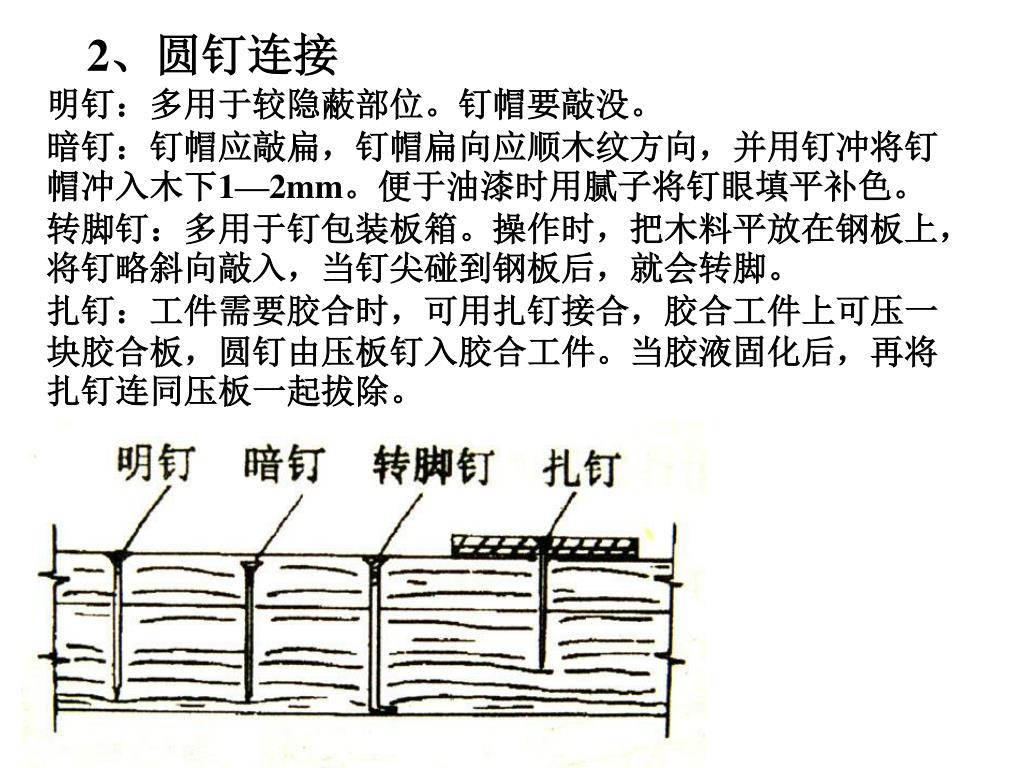 2、圆钉连接
明钉：多用于较隐蔽部位。钉帽要敲没。
暗钉：钉帽应敲扁，钉帽扁向应顺木纹方向，并用钉冲将钉
帽冲入木下1—2mm。便于油漆时用腻子将钉眼填平补色。
转脚钉：多用于钉包装板箱。操作时，把木料平放在钢板上，
将钉略斜向敲入，当钉尖碰到钢板后，就会转脚。
扎钉：工件需要胶合时，可用扎钉接合，胶合工件上可压一
块胶合板，圆钉由压板钉入胶合工件。当胶液固化后，再将
扎钉连同压板一起拔除。
明钉 暗钉 转脚钉 扎钉